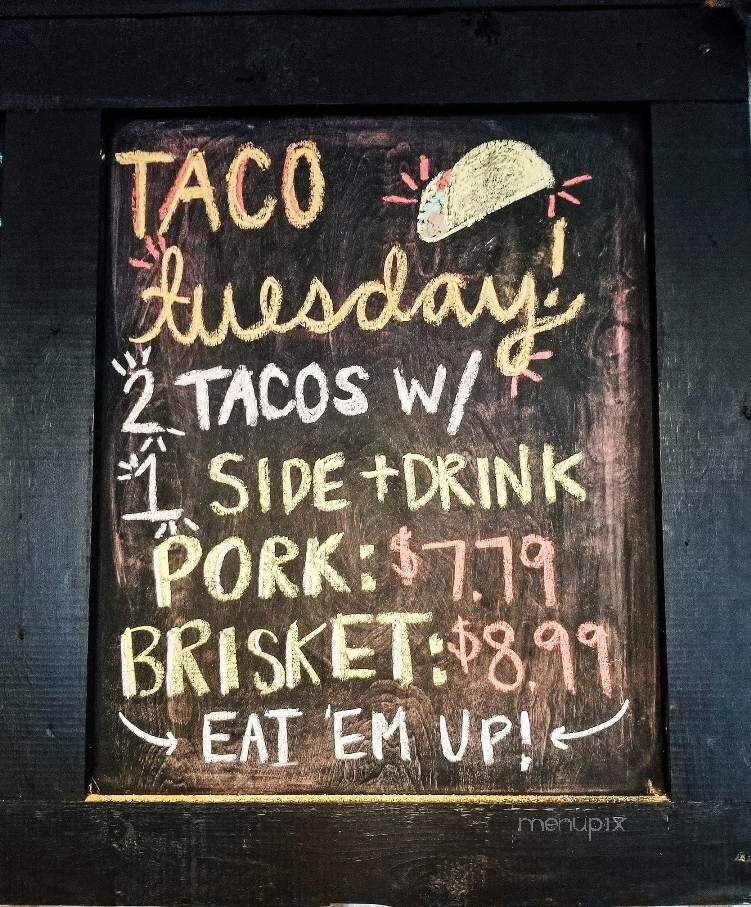 TACO
tuesday!
2 TACOS W/
1 SIDE + DRINK
PORK: $7.79
BRISKET: $8.99
EAT 'EM UP!
menupix